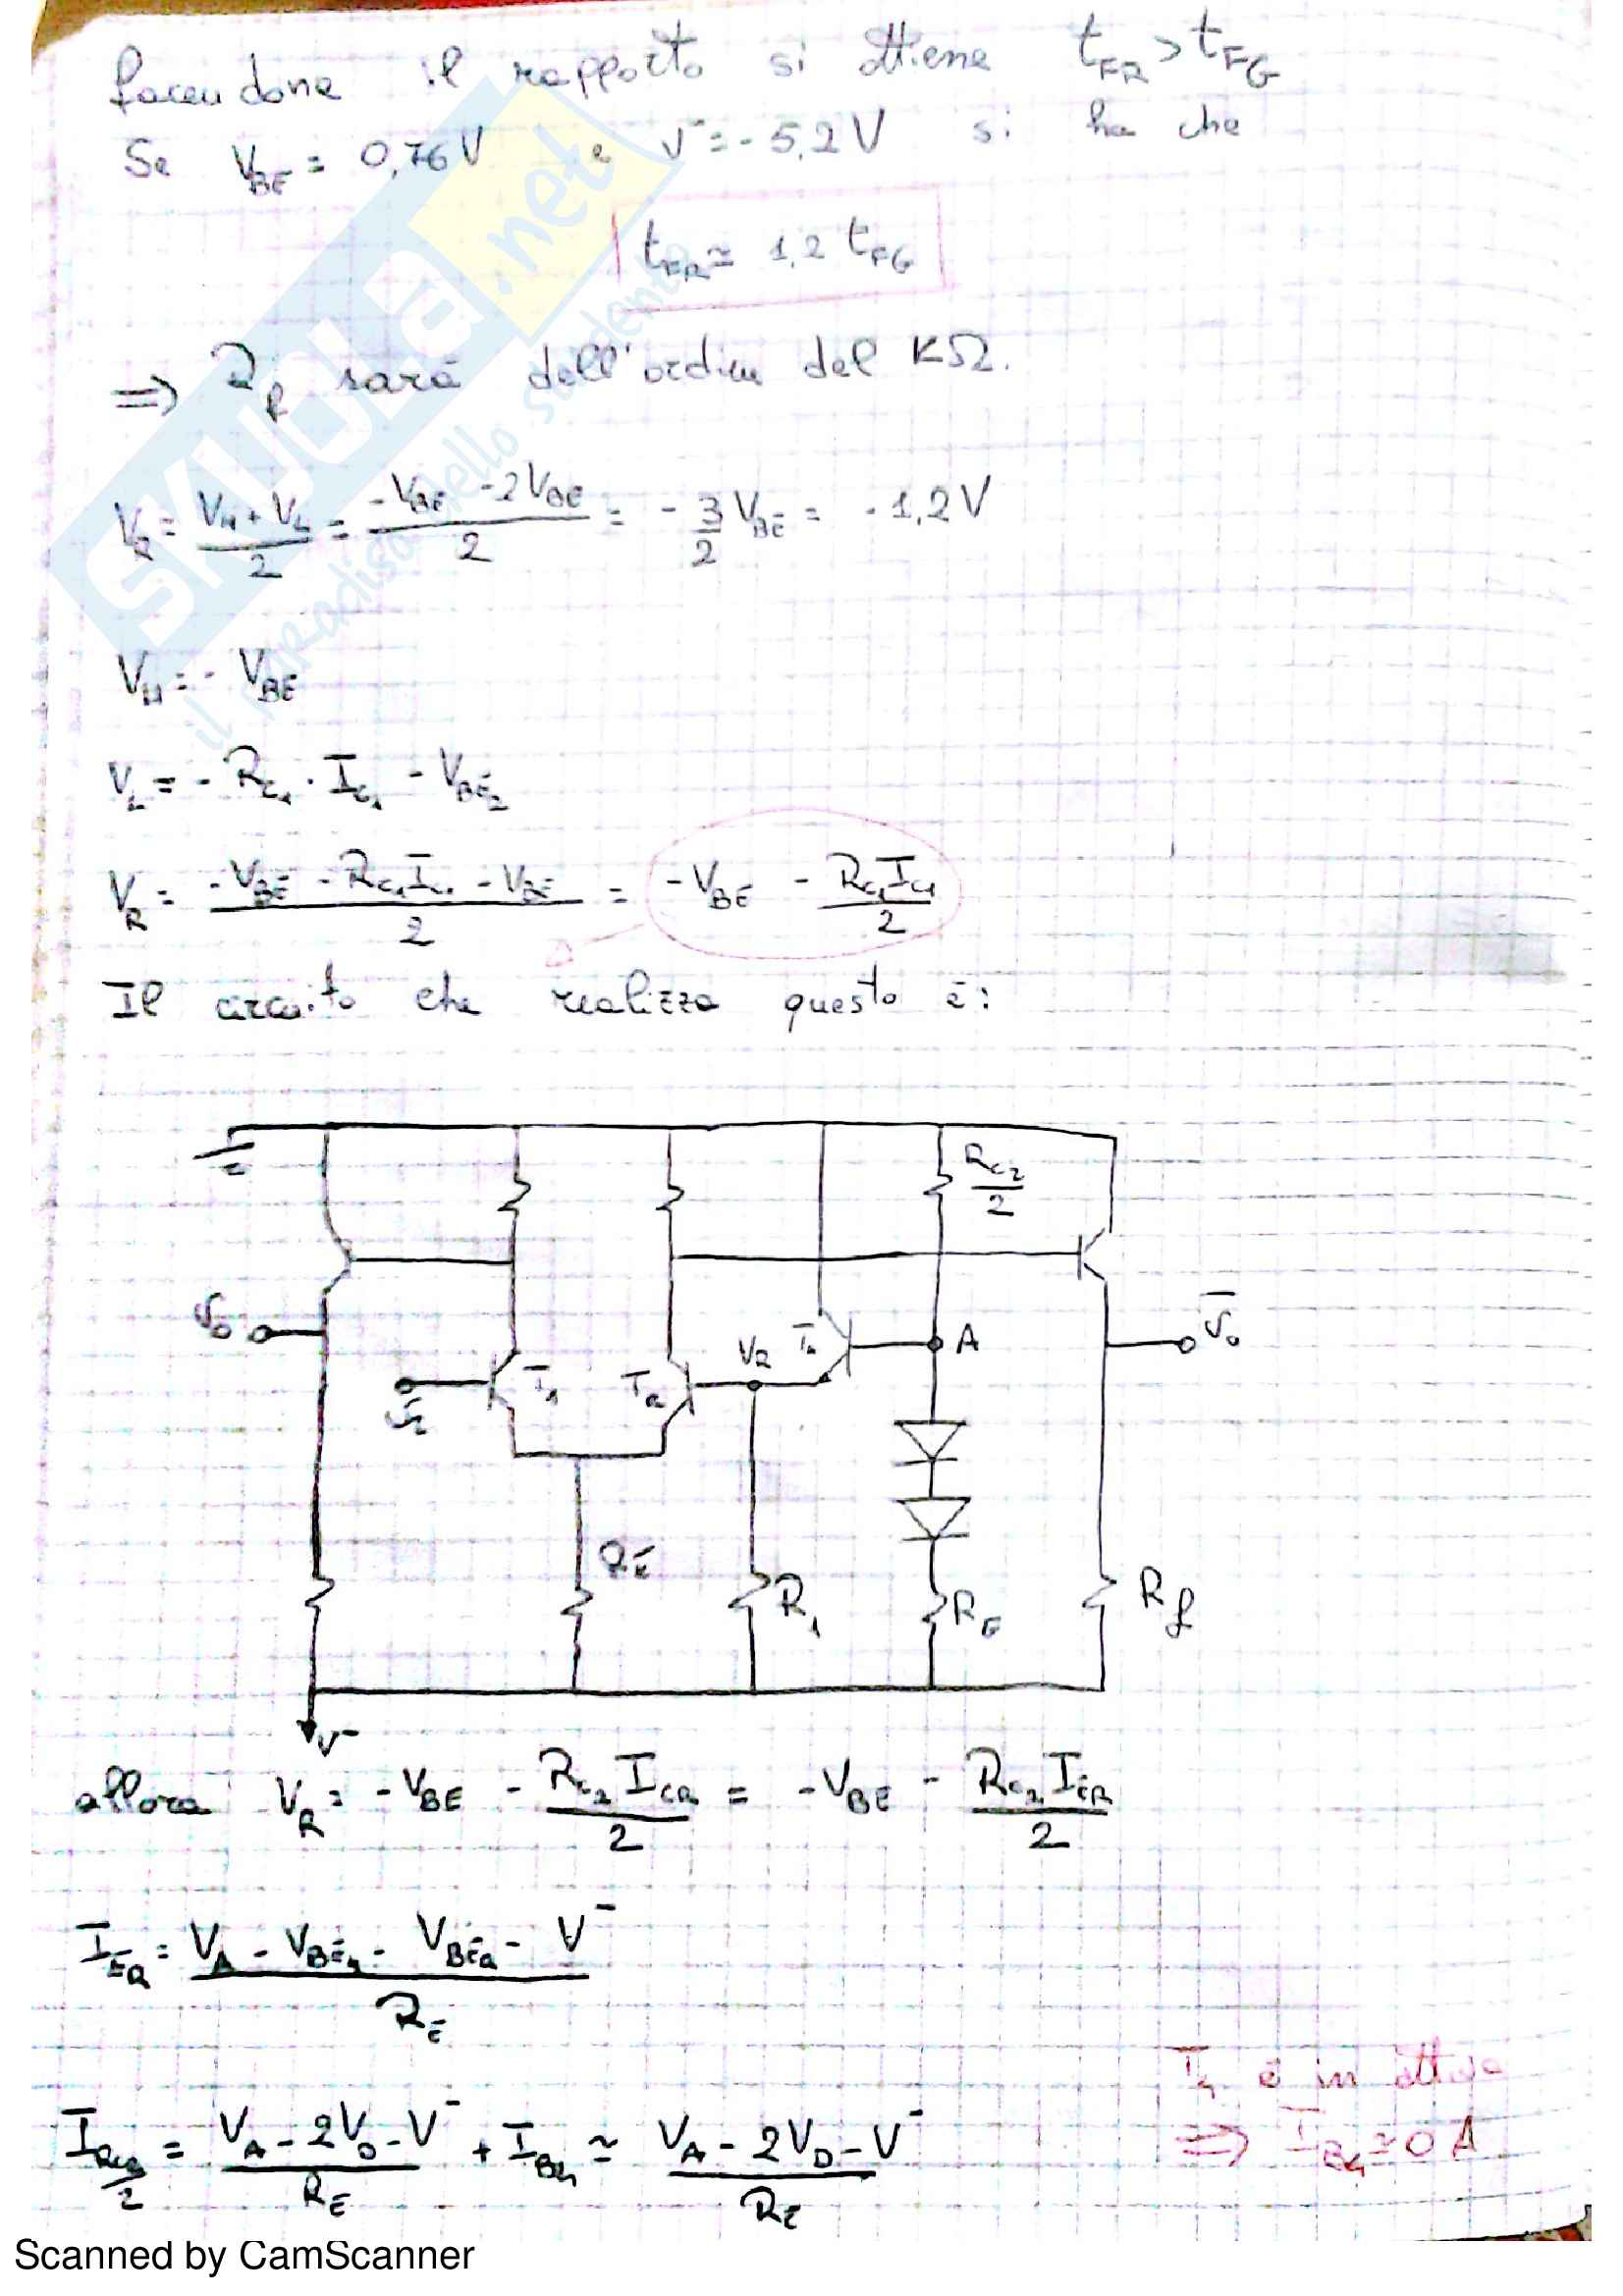 facendone il rapporto si ottiene tFR > tFG
Se VBE = 0,76 V e V⁻ = -5,2 V si ha che
tFR ≃ 1,2 tFG
⇒ Rf sarà dell'ordine del KΩ.
VR = (VH + VL)/2 = (-VBE - 2VBE)/2 = -3/2 VBE = -1,2 V
VH = -VBE
VL = -RC1 · IC1 - VBE2
VR = (-VBE - RC1 IC1 - VBE)/2 = -VBE - RC1 IC1/2
Il circuito che realizza questo è:
RC2/2
V0
A
V̄0
VR
T4
Vi
T1
TR
RE
R1
RE
Rf
V⁻
allora VR = -VBE - RC2 ICR/2 = -VBE - RC2 IER/2
IER = (VA - VBE4 - VBER - V⁻)/RE
T4 è in attiva
⇒ IB4 ≃ 0 A
IRC2/2 = (VA - 2VD - V⁻)/RE + IB4 ≃ (VA - 2VD - V⁻)/RE
SKUOLA.net
il paradiso dello studente
Scanned by CamScanner